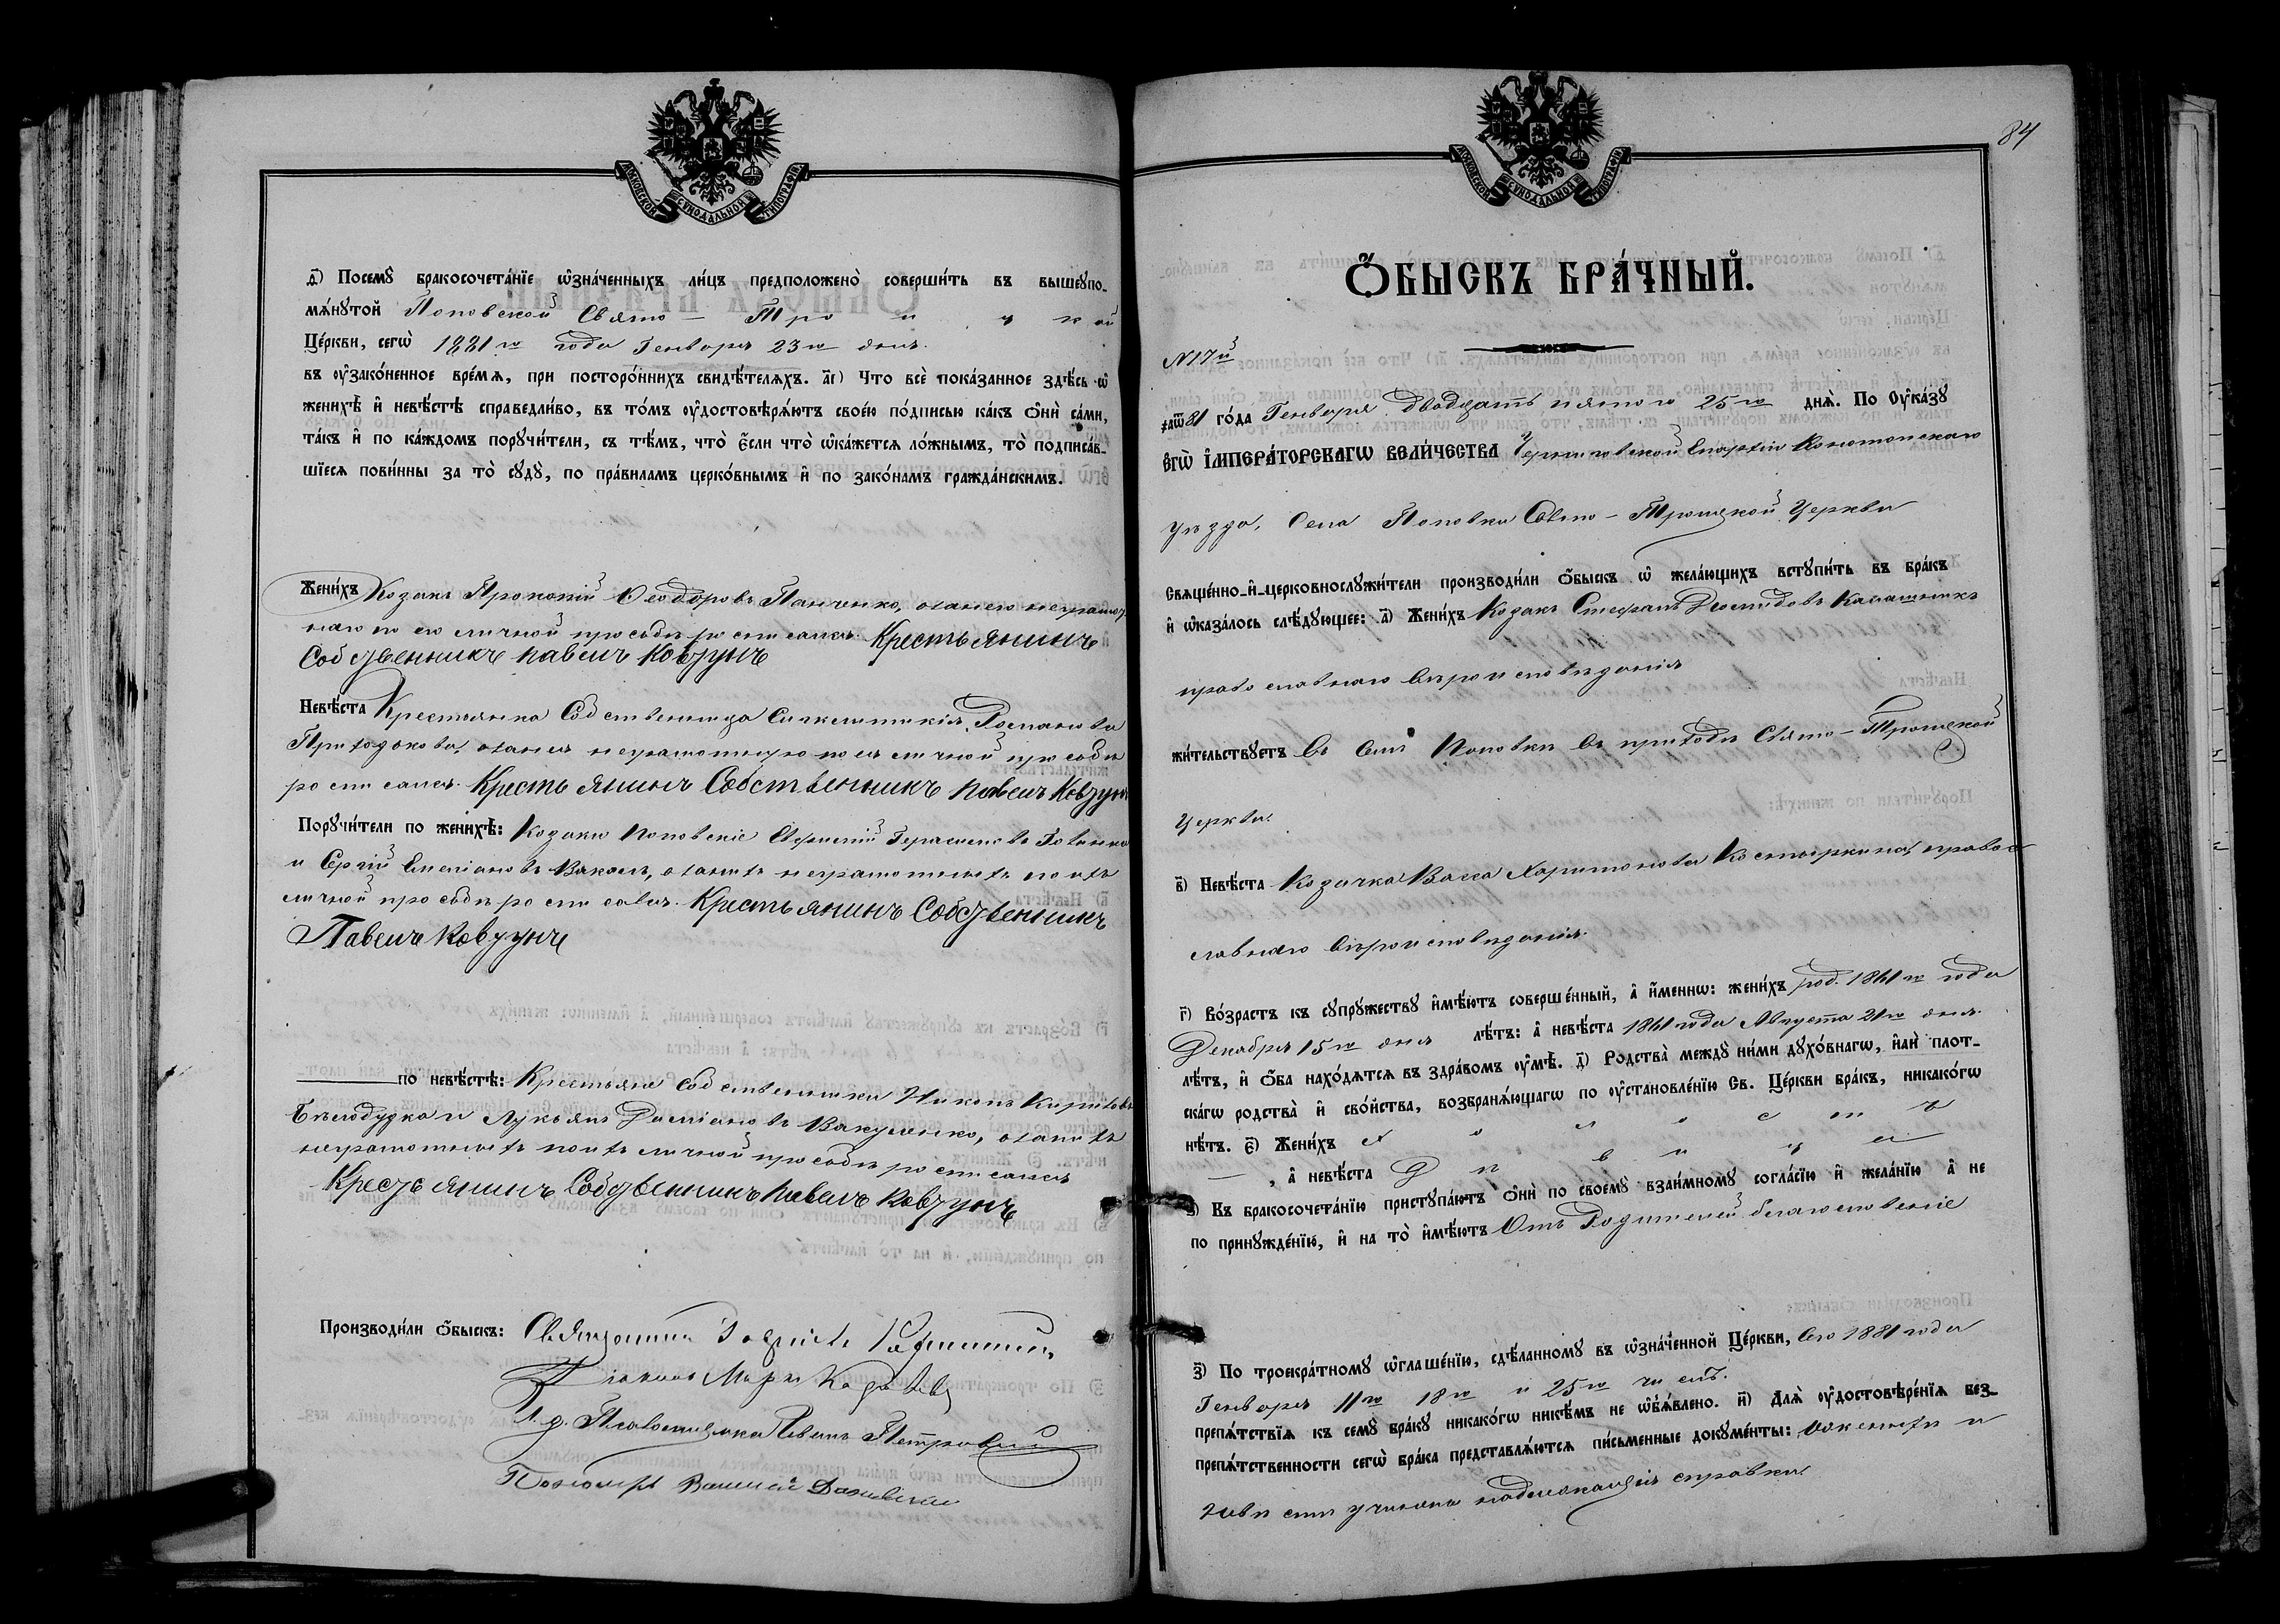 МОСКОВСКОЙ СѴНОДАЛЬНОЙ ТИПОГРАФІИ
д҃) Посемꙋ̀ бракосочета́нїе ѡ҆зна́ченныхъ ли́цъ предположено̀ соверши́ть въ вышеꙋпо-
мѧ́нꙋтой Поповской Свято – Тро и ц кой
Це́ркви, сегѡ̀ 1881го года Генваря 23го дня.
въ ᲂу҆зако́ненное вре́мѧ, при посторо́ннихъ свидѣ́телѧхъ. а҃і) Что всѐ пока́занное здѣ́сь ѡ҆
женихѣ̀ и҆ невѣ́стѣ справедли́во, въ то́мъ ᲂу҆достовѣрѧ́ютъ свое́ю по́дписью ка́къ ѻ҆нѝ са́ми,
та́къ и҆ по ка́ждомъ порꙋчи́тели, съ тѣ́мъ, что̀ є҆́сли что̀ ѡ҆ка́жетсѧ ло́жнымъ, то̀ подписа́в-
шїесѧ пови́нны за то̀ сꙋдꙋ̀, по пра́виламъ церко́внымъ и҆ по зако́намъ гражда́нскимъ.
Жени́хъ Козакъ Прокопій Ѳеодоровъ Панченко, онаго неграмот-
наго по его личной просьбѣ росписался Крестьянинъ
Собственникъ Павелъ Ковзунъ
Невѣ́ста Крестьянка Собственница Синклитикія Романова
Приходькова, оная неграмотную по ея личной просьбѣ
росписался. Крестьянинъ Собственникъ Павелъ Ковзунъ
Порꙋчи́тели по женихѣ̀: Козаки Поповскіе Герасимовъ
и Сергій Емеліановъ неграмотныхъ по ихъ
личной просьбѣ росписался. Крестьянинъ Собственникъ
Павелъ Ковзунъ
по невѣ́стѣ: Крестьяне Собственники Никонъ
и Лукьянъ Даміановъ Вакуленко,
неграмотныхъ по ихъ личной просьбѣ росписался
Крестьянинъ Собственникъ Павелъ Ковзунъ
Производи́ли ѻ҆́быскъ: Священникъ
Діаконъ Маркъ
И. д. Псаломщика Иванъ Петровскій
Пономарь
84
МОСКОВСКОЙ СѴНОДАЛЬНОЙ ТИПОГРАФІИ
Ѻ҆́БЫСКЪ БРА́ЧНЫЙ.
N 17й
҂аѿ81 го́да Генваря двадцать пятого 25го днѧ̀. По Оу҆ка́зꙋ
Є҆гѡ̀ І҆МПЕРА́ТОРСКАГѠ ВЕЛИ́ЧЕСТВА Черниговской Епархіи Конотопскаго
уѣзда, Села Поповки Свято – Троицкой Церкви
Свѧще́нно-и҆-церковнослꙋжи́тели производи́ли ѻ҆́быскъ ѡ҆ жела́ющихъ встꙋпи́ть въ бра́къ
и҆ ѡ҆каза́лось слѣ́дꙋющее: а҃) Жени́хъ Козакъ Стефанъ Діомидовъ Калашникъ
православнаго вѣроисповѣданія
жи́тельствꙋетъ въ селѣ Поповкѣ въ приходѣ Свято – Троицкой
Церкви.
в҃) Невѣ́ста Козачка Васса Харитонова Костыркина, правос-
лавнаго вѣроисповѣданія.
г҃) Во́зрастъ къ сꙋпрꙋ́жествꙋ и҆мѣ́ютъ соверше́нный, а҆ и҆́меннѡ: жени́хъ род. 1861го года
Декабря 15го дня лѣ́тъ: а҆ невѣ́ста 1861 года Августа 21го дня.
лѣ́тъ, и҆ ѻ҆́ба нахо́дѧтсѧ въ здра́вомъ ᲂу҆мѣ̀. д҃) Родства̀ междꙋ̀ ни́ми дꙋхо́внагѡ, и҆лѝ плот-
ска́гѡ родства̀ и҆ сво́йства, возбранѧ́ющагѡ по ᲂу҆становле́нїю Св. Це́ркви бра́къ, никако́гѡ
нѣ́тъ. є҃) Жени́хъ х о л о с т ъ
— , а҆ невѣ́ста д ѣ в и ц а
ѕ҃) Къ бракосочета́нїю пристꙋпа́ютъ ѻ҆нѝ по своемꙋ̀ взаи́мномꙋ согла́сїю и҆ жела́нїю а҆ не
по принꙋжде́нїю, и҆ на то̀ и҆мѣ́ютъ Отъ Родителей благословеніе
з҃) По троекра́тномꙋ ѡ҆глаше́нїю, сдѣ́ланномꙋ въ ѡ҆зна́ченной Це́ркви, сего 1881 года
Генваря 11го 18го и 25го числъ.
препѧ́тствїѧ къ семꙋ̀ бра́кꙋ никако́гѡ никѣ́мъ не ѡ҆б̾ѧ́влено. и҃) Длѧ̀ ᲂу҆достовѣре́нїѧ без-
препѧ́тственности сегѡ̀ бра́ка представлѧ́ютсѧ пи́сьменные докꙋме́нты: О женихѣ и
невѣстѣ учинена надлежащая справка.